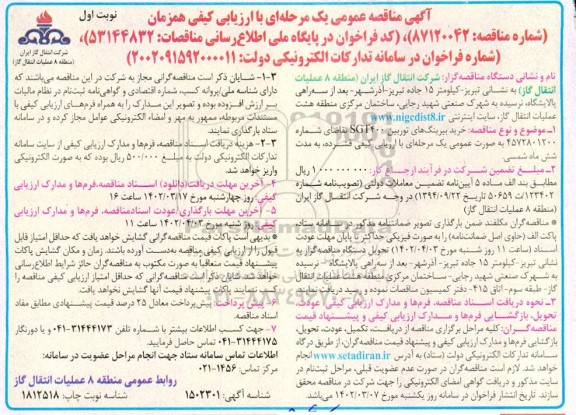 آگهی مناقصه عمومی یک مرحله‌ای با ارزیابی کیفی همزمان
نوبت اول
(شماره مناقصه: ۸۷۱۲۰۰۴۲)، (کد فراخوان در پایگاه ملی اطلاع‌رسانی مناقصات: ۵۳۱۴۴۸۳۲)،
(شماره فراخوان در سامانه تدارکات الکترونیکی دولت: ۲۰۰۲۰۹۱۵۹۲۰۰۰۰۱۱)
شرکت انتقال گاز ایران
(منطقه ۸ عملیات انتقال گاز)
نام و نشانی دستگاه مناقصه‌گزار: شرکت انتقال گاز ایران (منطقه ۸ عملیات
انتقال گاز) به نشانی تبریز-کیلومتر ۱۵ جاده تبریز-آذرشهر- بعد از سه‌راهی
پالایشگاه، نرسیده به شهرک صنعتی شهید رجایی، ساختمان مرکزی منطقه هشت
عملیات انتقال گاز، سایت اینترنتی www.nigcdist8.ir
۱- موضوع و نوع مناقصه: خرید بیرینگ‌های توربین SGT۴۰۰ تقاضای شماره
۴۵۷۲۸۰۱۲۰۰ به صورت عمومی یک مرحله‌ای با ارزیابی کیفی فشرده، به مدت
شش ماه شمسی
۲- مبلغ تضمین شرکت در فرآیند ارجاع کار: ریال
مطابق بند الف ماده ۵ آیین‌نامه تضمین معاملات دولتی (تصویب‌نامه شماره
۱۲۳۴۰۲/ت ۵۰۶۵۹ تاریخ ۱۳۹۴/۰۹/۲۲) در وجه شرکت انتقال گاز ایران
(منطقه ۸ عملیات انتقال گاز)
* مناقصه‌گران مکلفند ضمن بارگذاری تصویر ضمانتنامه مذکور در سامانه ستاد
پاکت الف (حاوی اصل ضمانتنامه) را به صورت فیزیکی حداکثر تا پایان مهلت عودت
اسناد (ساعت ۱۱ روز شنبه مورخ ۱۴۰۲/۰۴/۰۳) تحویل دستگاه مناقصه‌گزار به
نشانی تبریز-کیلومتر ۱۵ جاده تبریز- آذرشهر- بعد از سه‌راهی پالایشگاه - نرسیده
به شهرک صنعتی شهید رجایی- ساختمان مرکزی منطقه هشت عملیات انتقال
گاز- طبقه سوم- اتاق ۴۱۵- دفتر کمیسیون مناقصات نموده و رسید دریافت نمایند
۳- نحوه دریافت اسناد مناقصه، فرم‌ها و مدارک ارزیابی کیفی، عودت،
تحویل، بازگشایی فرم‌ها و مدارک ارزیابی کیفی و پیشنهاد قیمت
مناقصه‌گران: کلیه مراحل برگزاری مناقصه از دریافت، تکمیل، عودت، تحویل،
بازگشایی فرم‌ها و مدارک ارزیابی کیفی و پیشنهاد قیمت مناقصه‌گران، از طریق درگاه
سامانه تدارکات الکترونیکی دولت (ستاد) به آدرس www.setadiran.ir انجام
خواهد شد. لازم است مناقصه‌گران در صورت عدم عضویت قبلی، مراحل ثبت‌نام در
سایت مذکور و دریافت گواهی امضای الکترونیکی را جهت شرکت در مناقصه محقق
سازند. تاریخ انتشار فراخوان در سامانه روز یکشنبه مورخ ۱۴۰۲/۰۳/۰۷ می‌باشد.
۳-۱- شایان ذکر است مناقصه‌گرانی مجاز به شرکت در این مناقصه می‌باشند که
دارای شناسه ملی/پروانه کسب، شماره اقتصادی و گواهی‌نامه ثبت‌نام در نظام مالیات
بر ارزش افزوده بوده و تصویر این مدارک را به همراه فرم‌های ارزیابی کیفی با
مستندات مربوطه، ممهور به مهر و امضاء الکترونیکی عوامل مجاز کرده و در سامانه
ستاد بارگذاری نمایند.
۳-۲- هزینه دریافت اسناد مناقصه، فرم‌ها و مدارک ارزیابی کیفی از سایت سامانه
تدارکات الکترونیکی دولت به مبلغ ۵۰۰/۰۰۰ ریال بوده، که به صورت الکترونیکی
واریز خواهد شد.
۴- آخرین مهلت دریافت (دانلود) اسناد مناقصه، فرم‌ها و مدارک ارزیابی
کیفی: روز چهارشنبه مورخ ۱۴۰۲/۰۳/۱۷ ساعت ۱۶
۵- آخرین مهلت بارگذاری/عودت اسناد مناقصه، فرم‌ها و مدارک ارزیابی
کیفی: روز شنبه مورخ ۱۴۰۲/۰۴/۰۳ ساعت ۱۱
* بدیهی است پاکات قیمت مناقصه‌گرانی گشایش خواهد یافت که حداقل امتیاز قابل
قبول را از ارزیابی کیفی مناقصه به‌دست آورده باشند. زمان و مکان گشایش پاکات
پیشنهاد قیمت متعاقباً به صورت مکتوب به مناقصه‌گران حائز شرایط اطلاع‌رسانی
خواهد شد. شایان ذکر است مناقصه‌گرانی که حداقل امتیاز ارزیابی کیفی مناقصه را
کسب ننمایند، پاکات پیشنهاد قیمت آنها گشایش نخواهد یافت.
۶- پیش پرداخت: پیش‌پرداخت معادل ۲۵ درصد قیمت پیشنهادی مطابق مفاد
اسناد مناقصه.
۷- جهت کسب اطلاعات بیشتر با شماره تلفن ۳۱۴۴۴۱۷۳-۰۴۱ و یا دورنگار
۳۱۴۴۴۱۷۵-۰۴۱ تماس حاصل فرمایید.
اطلاعات تماس سامانه ستاد جهت انجام مراحل عضویت در سامانه:
مرکز تماس: ۱۴۵۶-۰۲۱
روابط عمومی منطقه ۸ عملیات انتقال گاز
شناسه آگهی: ۱۵۰۲۳۰۱
شناسه نوبت چاپ: ۱۸۱۲۵۱۸